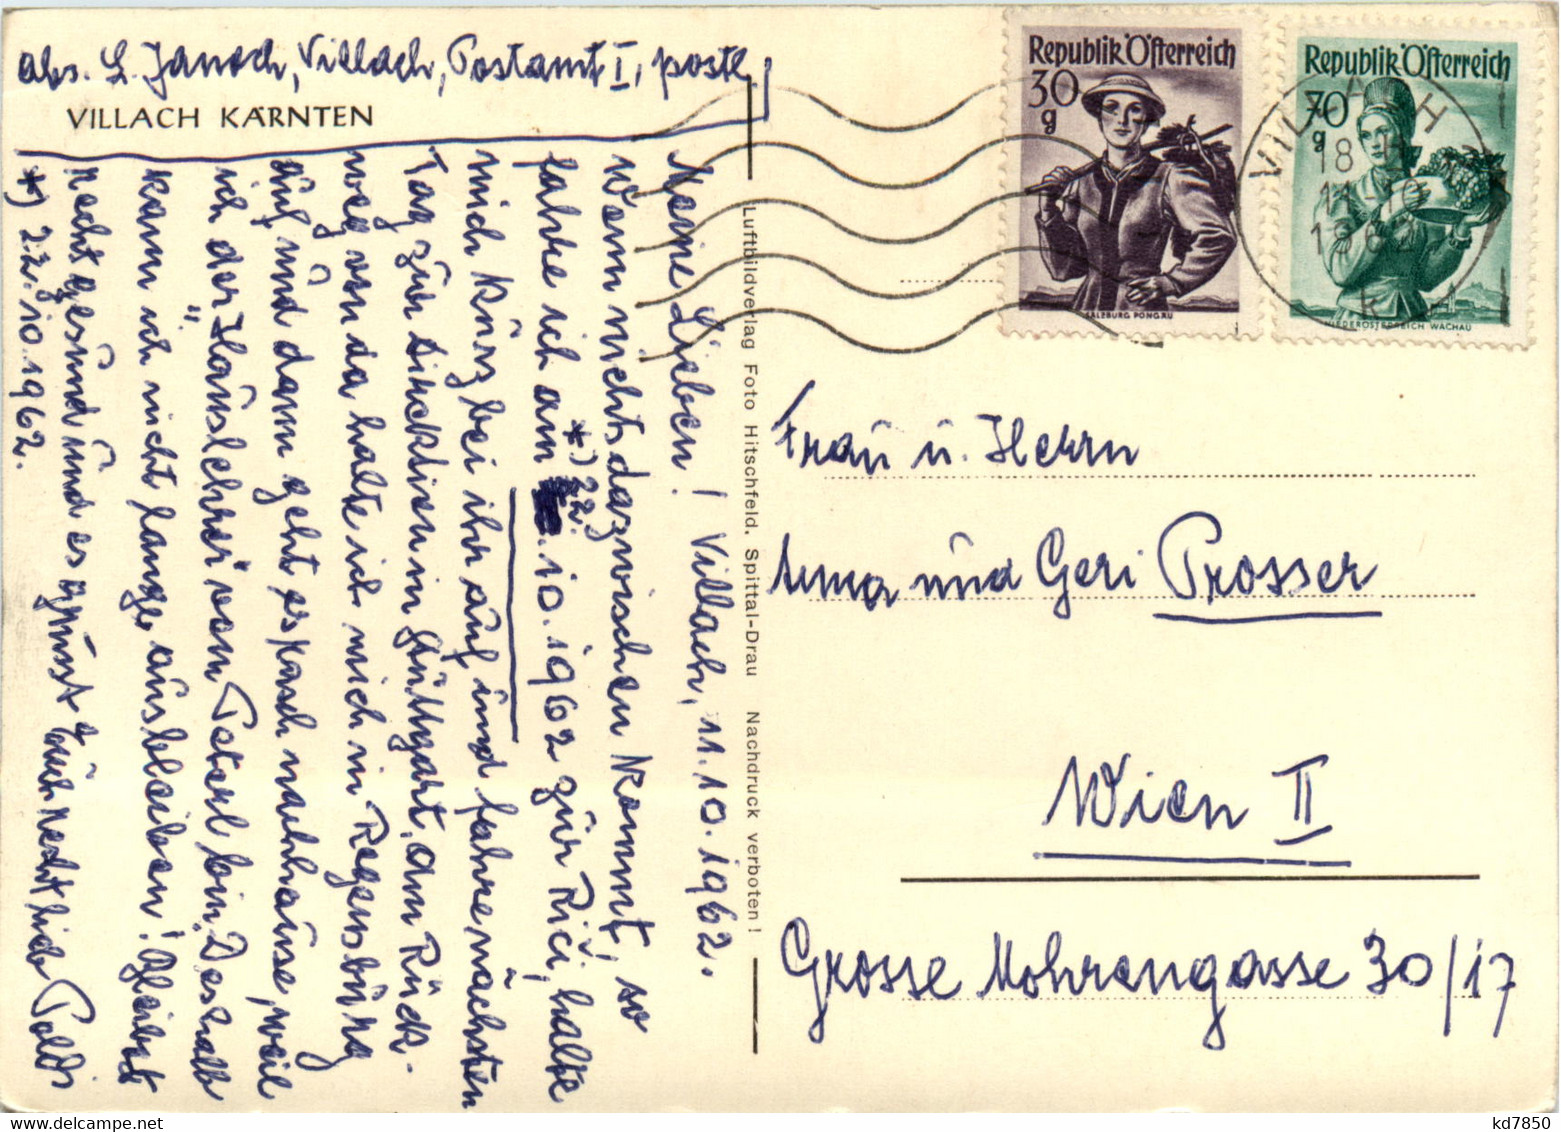 abs. L. Janoch, Villach, Postamt I, postl.
VILLACH KÄRNTEN
Meine Lieben! Villach, 11.10.1962.
Wenn nichts dazwischen kommt, so
fahre ich am *) 22. 10. 1962 zur Rici, halte
mich kurz bei ihr auf und fahre nächsten
Tag zur direktion in Stuttgart. Am Rück-
weg von da halte ich mich in Regensburg
auf und dann geht es rasch nachhause, weil
ich der "Hauslehrer" vom Peterl bin. Deshalb
kann ich nicht lange ausbleiben! Bleibet
recht gesund und es grüsst Euch recht lieb Poldi
*) 22.10.1962.
Luftbildverlag Foto Hitschfeld, Spittal-Drau Nachdruck verboten!
Republik Österreich
30
g
SALZBURG PONGAU
Republik Österreich
70
g
NIEDERÖSTERREICH WACHAU
VILLACH
18
11-10
1962
Frau u. Herrn
Anna und Geri Prosser
Wien II
Grosse Mohrengasse 30/17
kd7850